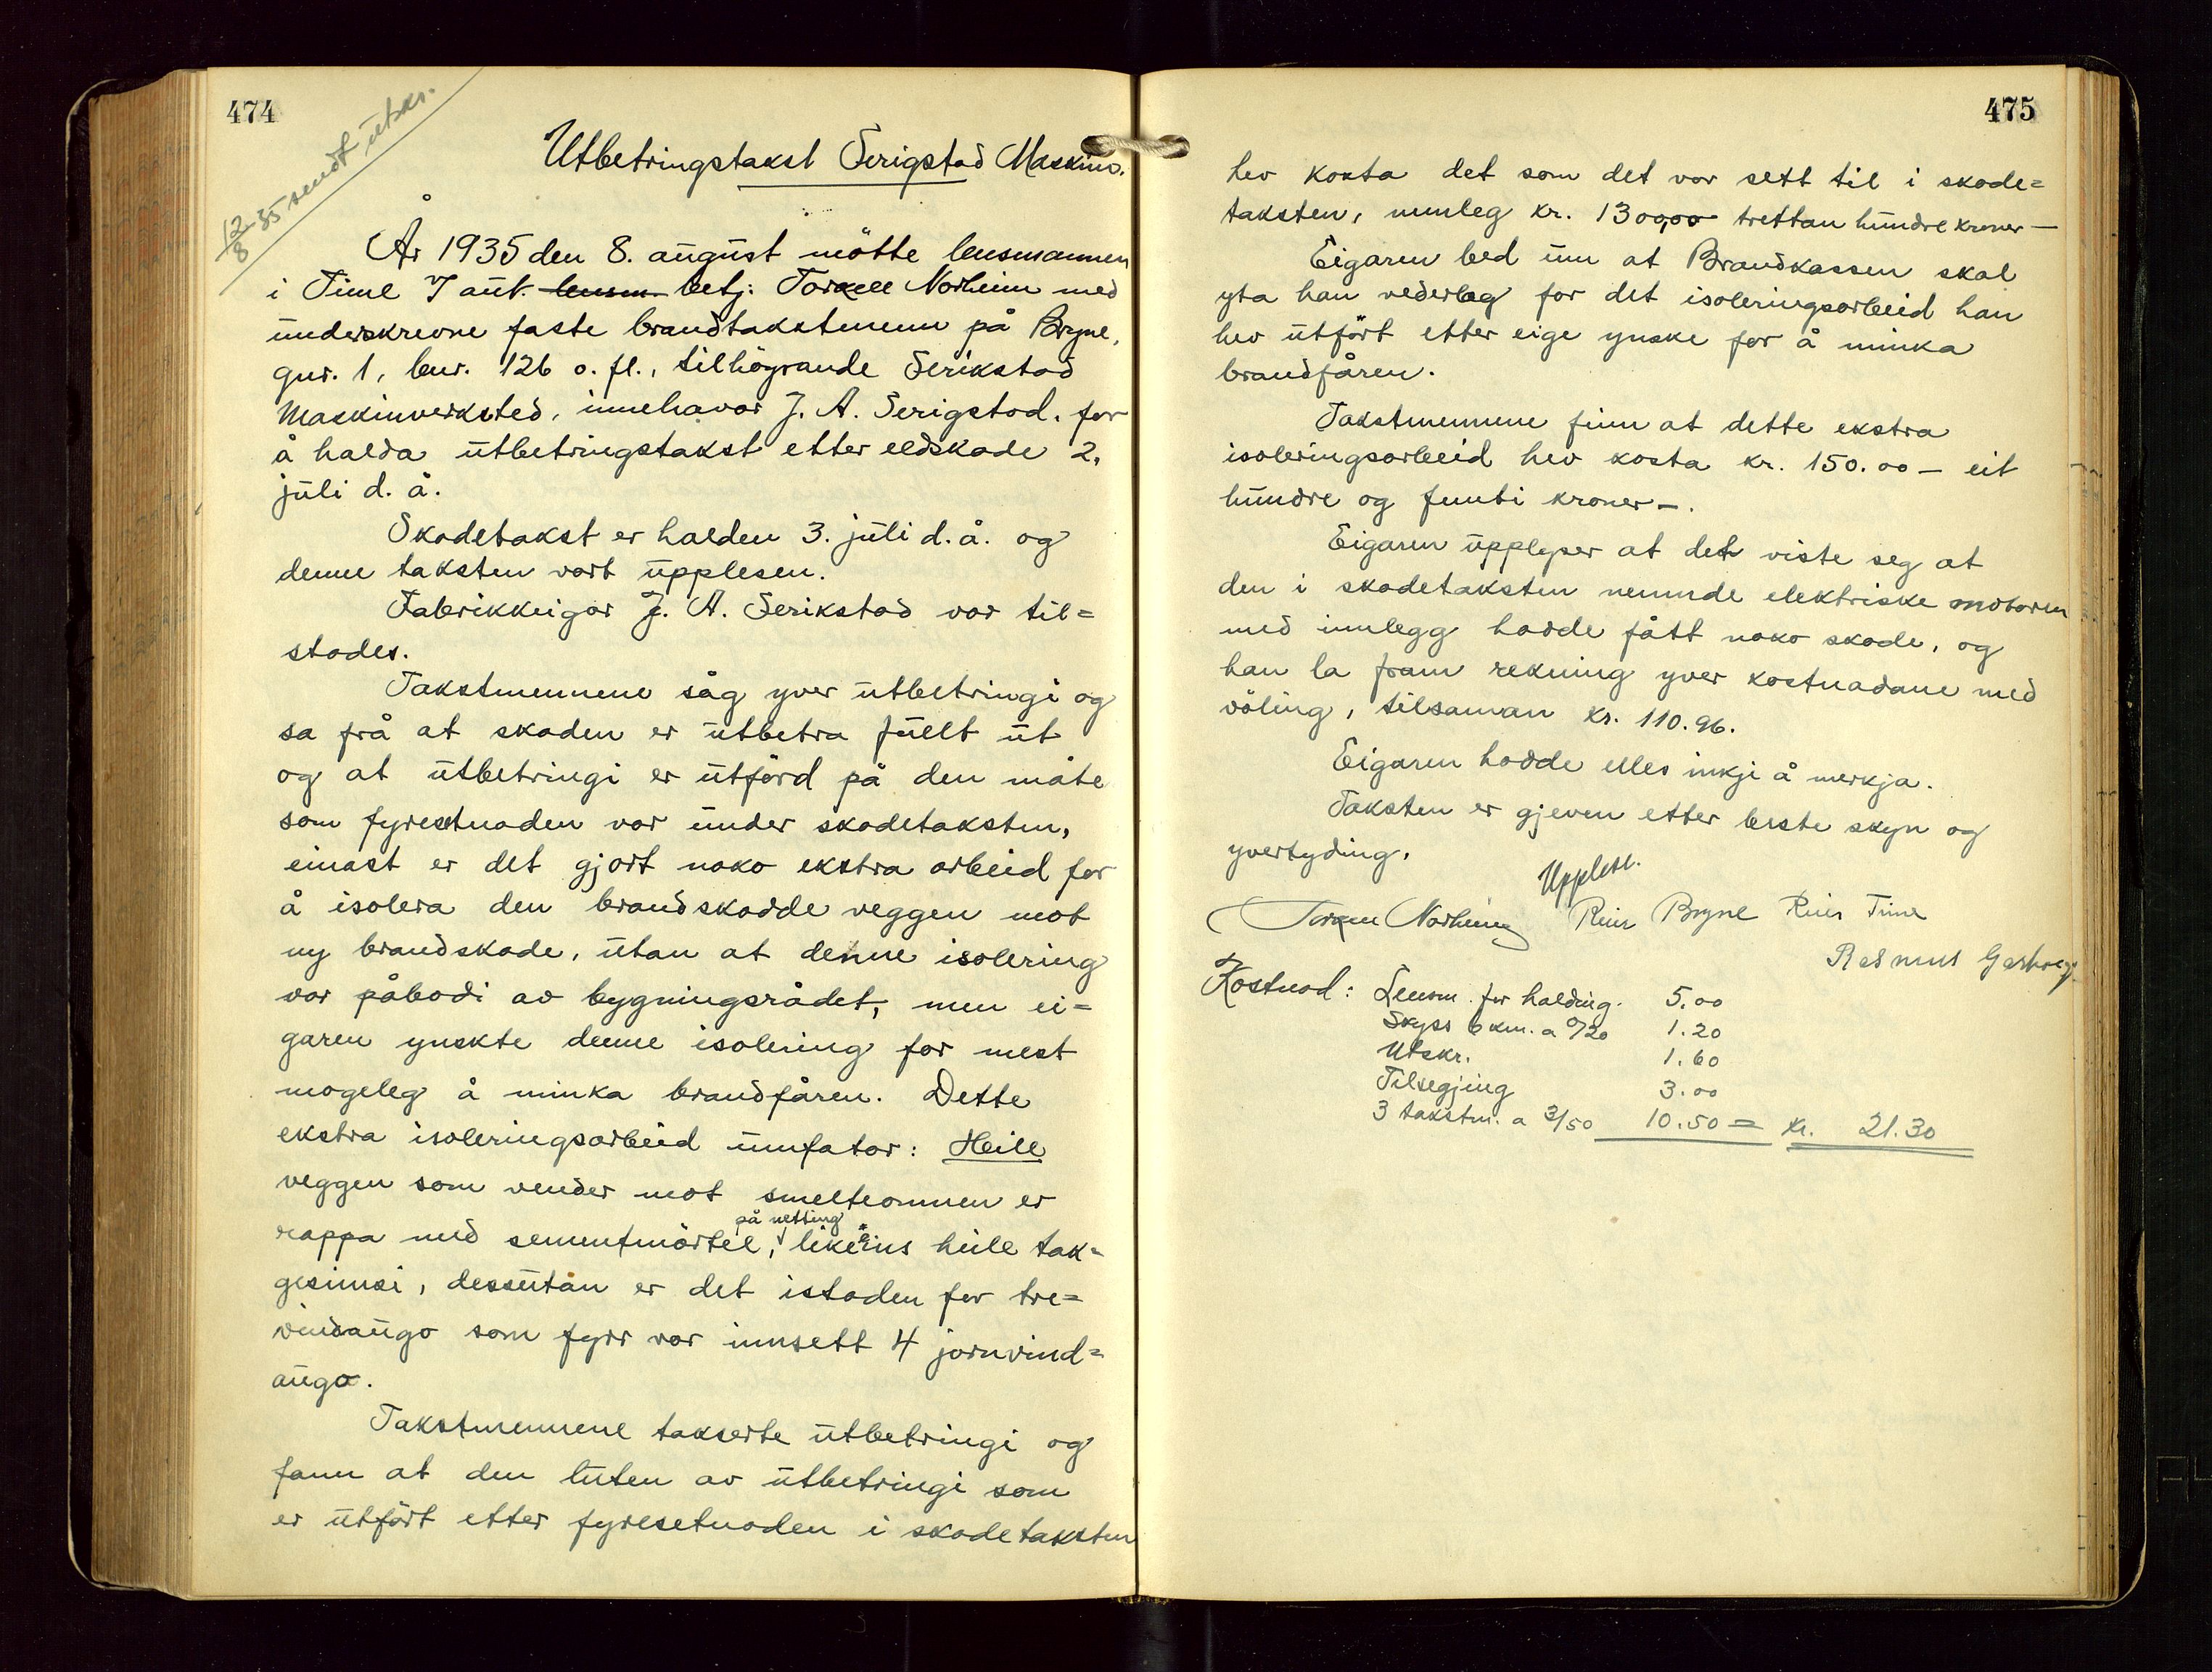 474
12/8-35 sendt utskr.
Utbetringstakst Serigstad Maskinv.
År 1935 den 8. august mötte lensmannen
i Time / aut. lensm. betj. Torkell Norheim med
underskrevne faste brandtakstmenn på Bryne,
gnr. 1, bnr. 126 o. fl., tilhöyrande Serikstad
Maskinverksted, innehavar J. A. Serigstad, for
å halda utbetringstakst etter eldskade 2.
juli d. å.
Skadetakst er halden 3. juli d. å. og
denne taksten vart upplesen.
Fabrikkeigar J. A. Serikstad var til=
stades.
Takstmennene såg yver utbetringi og
sa frå at skaden er utbetra fullt ut
og at utbetringi er utförd på den måte
som fyresetnaden var under skadetaksten,
einast er det gjort noko ekstra arbeid for
å isolera den brandskadde veggen mot
ny brandskade, utan at denne isolering
var påbodi av bygningsrådet, men ei=
garen ynskte denne isolering for mest
mogeleg å minka brandfåren. Dette
ekstra isoleringsarbeid umfatar: Heile
veggen som vender mot smelteomnen er
rappa med sementmörtel, på netting likeeins heile tak=
gesimsi, dessutan er det istaden for tre=
vindaugo som fyrr var innsett 4 jarnvind=
augo.
Takstmennene takserte utbetringi og
fann at den luten av utbetringi som
er utfört etter fyresetnaden i skadetaksten
475
hev kosta det som det var sett til i skade=
taksten, nemleg kr. 1300,00 trettan hundre kroner—
Eigaren bed um at Brandkassen skal
yta han vederlag for det isoleringsarbeid han
hev utfört etter eige ynske for å minka
brandfåren.
Takstmennene finn at dette ekstra
isoleringsarbeid hev kosta kr. 150.00 — eit
hundre og femti kroner —.
Eigaren upplyser at det viste seg at
den i skadetaksten nemnde elektriske motoren
med innlegg hadde fått noko skade, og
han la fram rekning yver kostnadane med
völing, tilsaman kr. 110.96.
Eigaren hadde elles inkje å merkja.
Taksten er gjeven etter beste skyn og
yvertyding.
Upplese.
Torkell Norheim Reier Bryne Reier Time
Rasmus Garborg
Kostnad: Lensm. for halding. 5.00
Skyss 6 km. a 0/20 1.20
Utskr. 1.60
Tilsegjing 3.00
3 takstm. a 3/50 10.50 = kr. 21.30